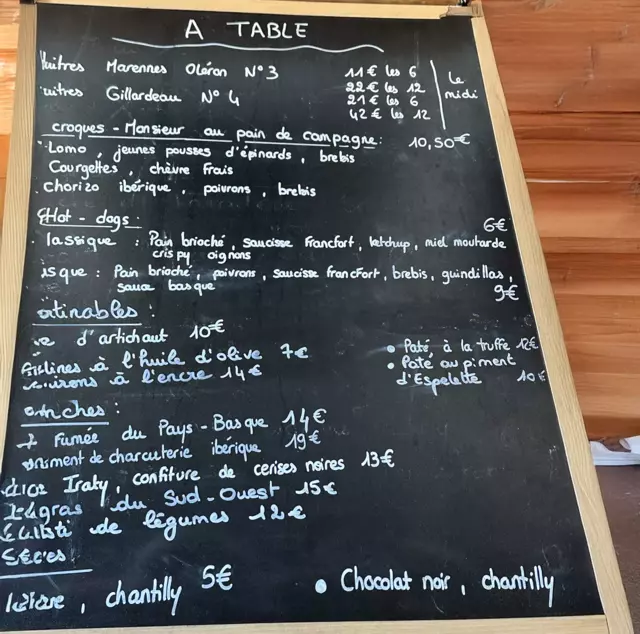 A TABLE
uitres Marennes Oléron N°3 11€ les 6
22€ les 12
uitres Gillardeau N°4 21€ les 6
42€ les 12
Le midi
croques - Monsieur au pain de campagne : 10,50€
Lomo, jeunes pousses d'épinards, brebis
Courgettes, chèvre frais
chorizo ibérique, poivrons, brebis
Hot - dogs : 6€
lassique : Pain brioché, saucisse Francfort, ketchup, miel moutarde
crispy oignons
sque : Pain brioché, poivrons, saucisse francfort, brebis, guindillas,
sauce basque 9€
tinables :
d'artichaut 10€
à l'huile d'olive 7€
à l'encre 14€
• Paté à la truffe 12€
• Paté au piment
d'Espelette 10€
nches :
Fumée du Pays-Basque 14€
de charcuterie ibérique 19€
Iraty, confiture de cerises noires 13€
gras du Sud-Ouest 15€
de légumes 12€
chantilly 5€
• Chocolat noir, chantilly